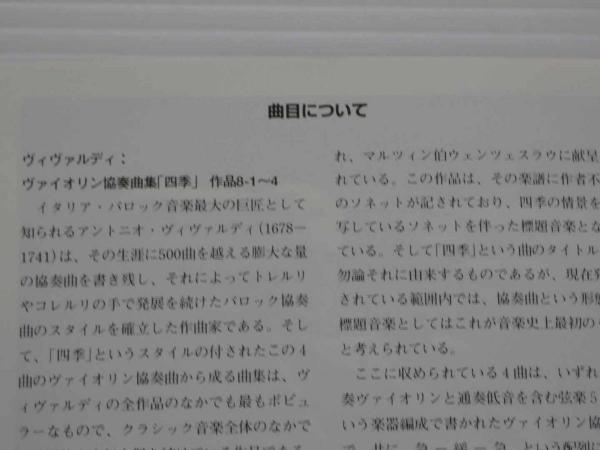 曲目について
ヴィヴァルディ：
ヴァイオリン協奏曲集「四季」 作品8-1〜4
イタリア・バロック音楽最大の巨匠として
知られるアントニオ・ヴィヴァルディ(1678ー
1741)は、その生涯に500曲を越える膨大な量
の協奏曲を書き残し、それによってトレルリ
やコレルリの手で発展を続けたバロック協奏
曲のスタイルを確立した作曲家である。そし
て、「四季」というスタイルの付されたこの4
曲のヴァイオリン協奏曲から成る曲集は、ヴ
ィヴァルディの全作品のなかでも最もポピュ
ラーなもので、クラシック音楽全体のなかで
れ、マルツィン伯ウェンツェスラウに献呈
れている。この作品は、その楽譜に作者不
のソネットが記されており、四季の情景を
写しているソネットを伴った標題音楽とな
ている。そして「四季」という曲のタイトル
勿論それに由来するものであるが、現在発
されている範囲内では、協奏曲という形態
標題音楽としてはこれが音楽史上最初の
と考えられている。
ここに収められている4曲は、いずれ
奏ヴァイオリンと通奏低音を含む弦楽5
いう楽器編成で書かれたヴァイオリン協
で、共に、急ー緩ー急、という配列に